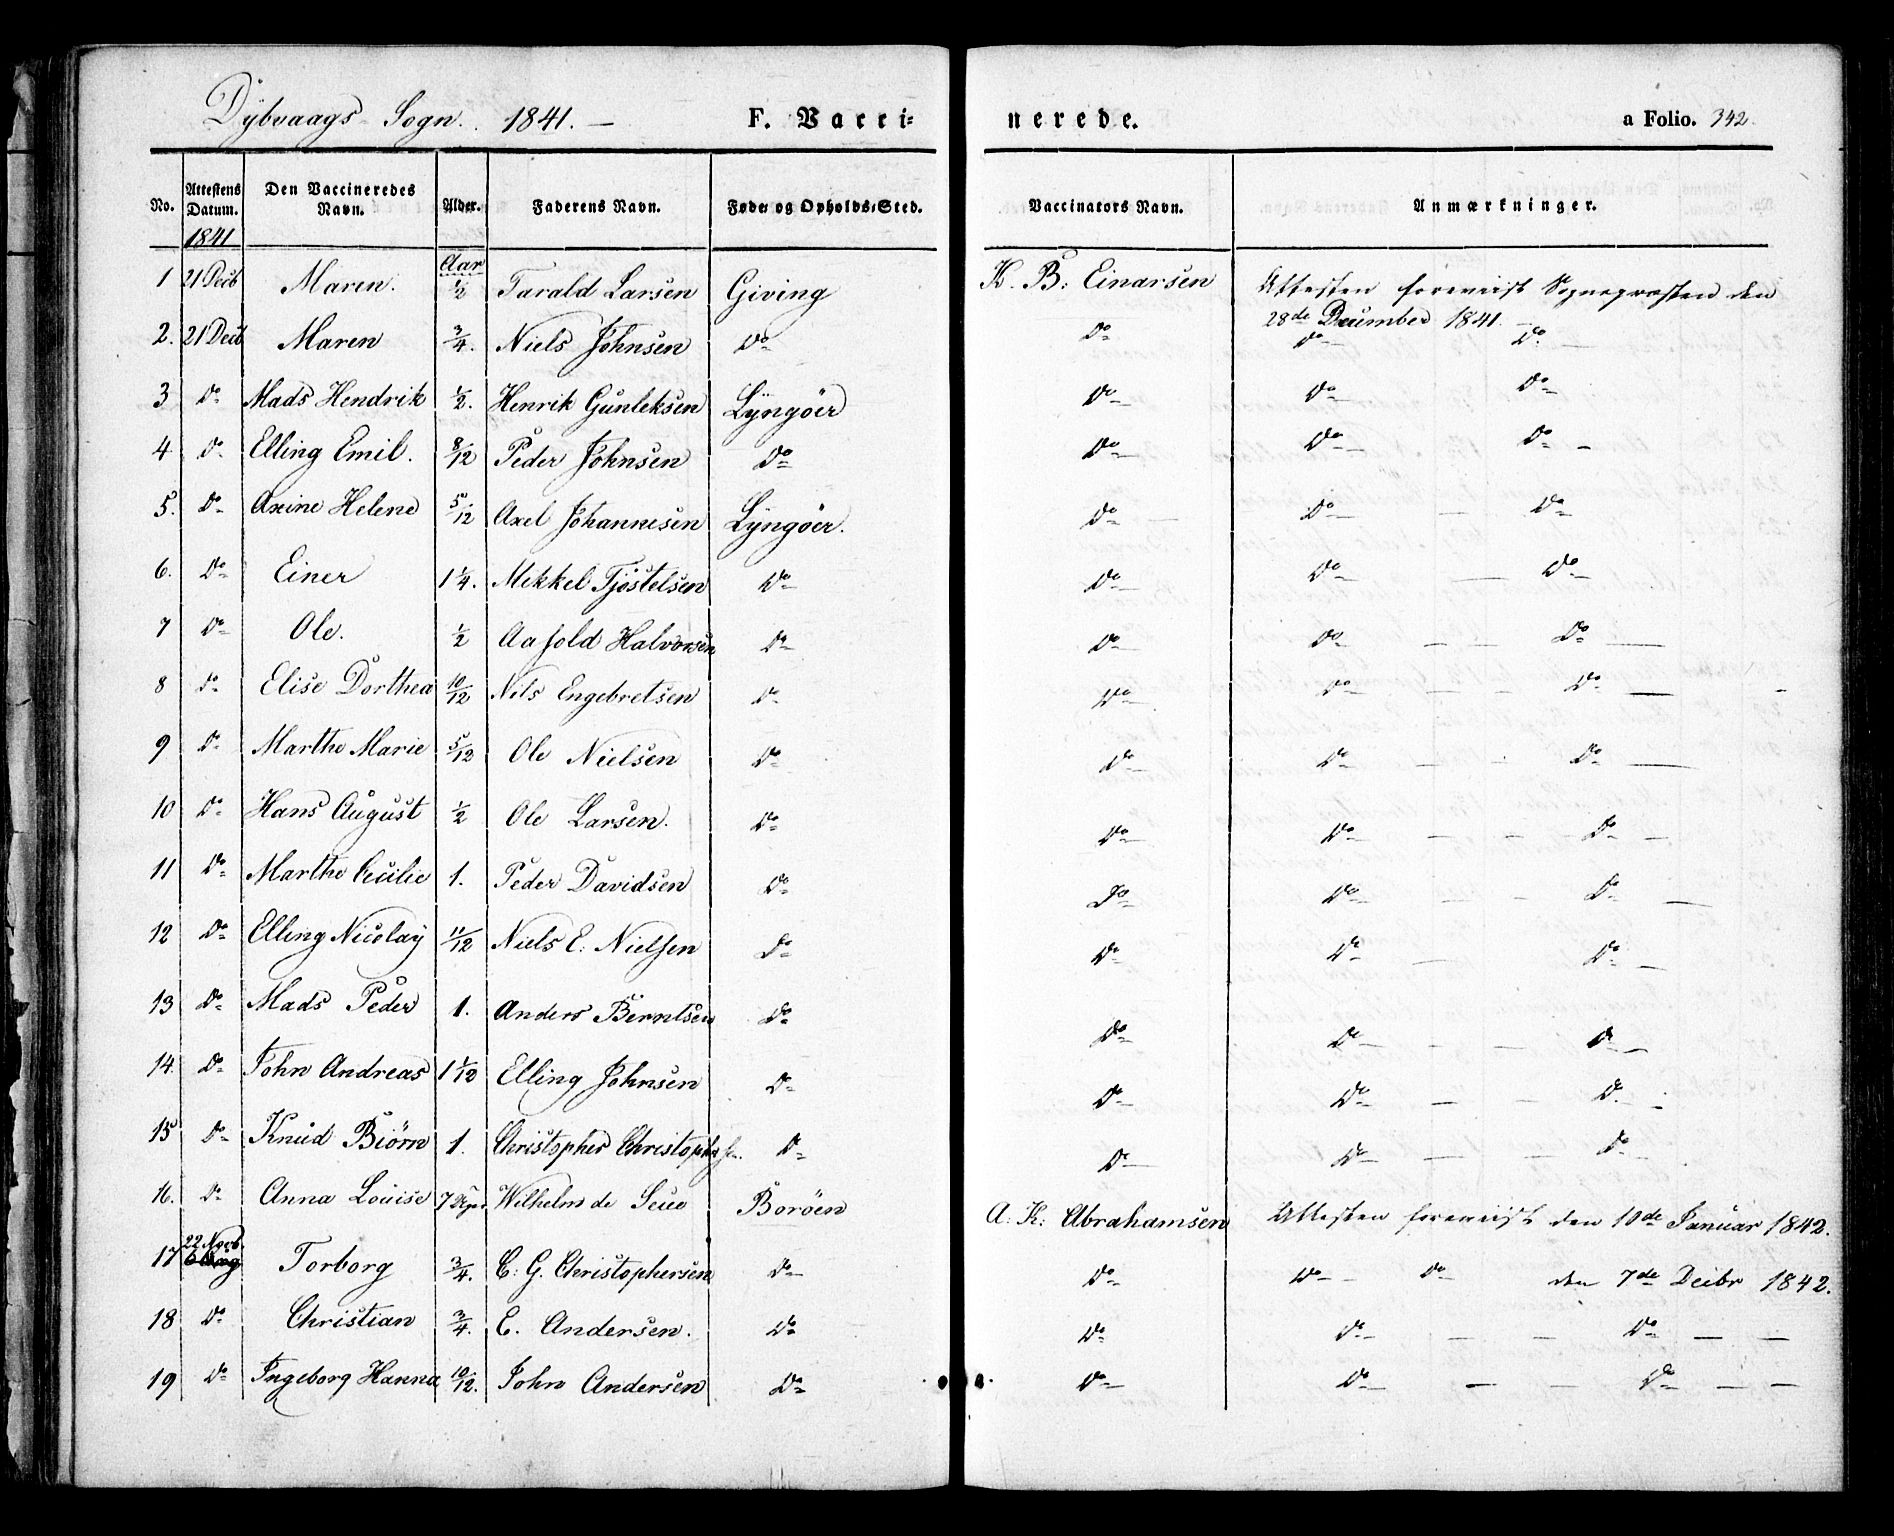 Dÿbvaags Sogn. 1841. — F. Vacci= nerede. a Folio. 342.
No. Attestens Datum. Den Vaccineredes Navn. Alder. Faderens Navn. Føde= og Opholds=Sted. Vaccinators Navn. Anmærkninger.
1841 Aar
1 21 Decb Maren. 1/2 Tarald Larsen Giving K. B: Einarsen Attesten foreviist Sognepræsten den
28de December 1841.
2. 21 Decb Maren 3/4. Niels Johnsen Do Do Do Do
3 Do Mads Hendrik 1/2. Henrik Gunleksen Lÿngöer Do Do Do
4 Do Elling Emil. 8/12 Peder Johnsen Do Do Do Do
5. Do Axine Helene 5/12 Axel Johannesen Lÿngöer. Do Do Do
6. Do Einer 1 1/4. Mekkel Tjöstelsen Do Do Do Do
7 Do Ole. 1/2 Aasold Halvorsen Do Do Do Do
8 Do Elise Dorthea 10/12 Nils Engebretsen Do Do Do Do
9 Do Marthe Marie 5/12 Ole Nielsen Do Do Do Do
10 Do Hans August 1/2 Ole Larsen. Do Do Do Do
11 Do Marthe Cecilie 1. Peder Davidsen Do Do Do Do
12 Do Elling Nicolaÿ 11/12 Niels E: Nielsen Do Do Do Do
13 Do Mads Peder 1. Anders Berntsen Do Do Do Do
14. Do John Andreas 1 1/12 Elling Johnsen Do Do Do Do
15 Do Knud Biörn 1. Christopher Christophersen Do Do Do Do
16. Do Anna Louise 7 Wilhelm de Seue Boröen A: K: Abrahamsen Attesten foreviist den 10de Januar 1842.
17 22 Novb. Torborg 3/4. C: G. Christophersen Do Do Do Do den 7de Decbr 1842.
18 Do Christian 3/4. E. Andersen. Do Do Do Do
19 Do Ingeborg Hanna 10/12. John Andersen Do Do Do Do